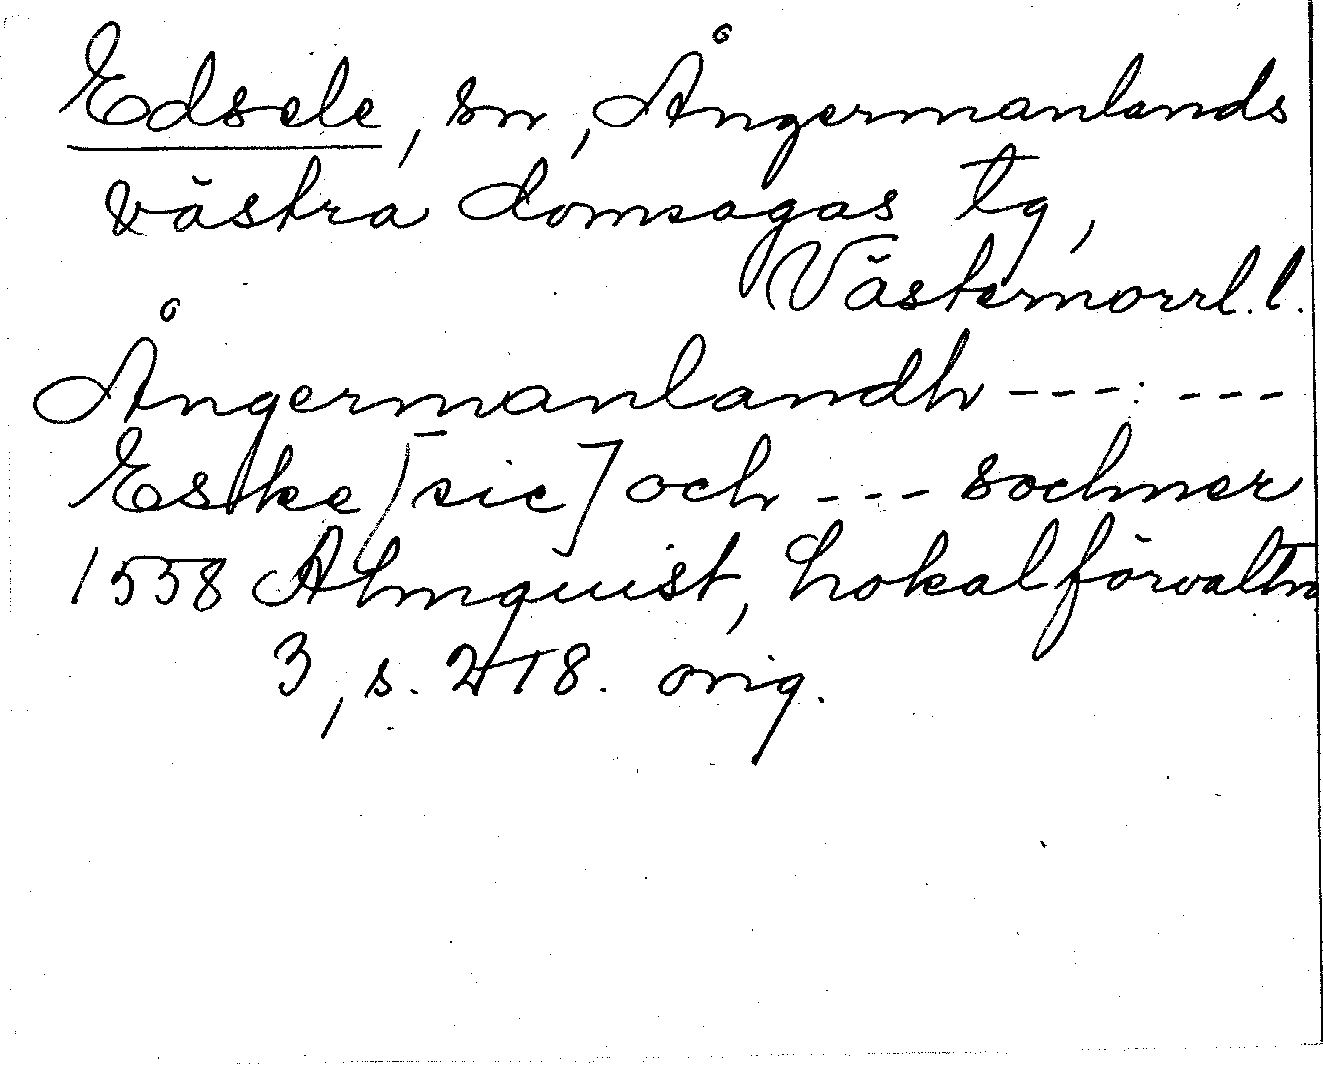 Edsele, sn, Ångermanlands
västra domsagas tg,
Västernorrl. l.
Ångermanlandh ---: ---
Eske [sic] och --- sochner
1558 Almquist, Lokalförvaltn
3, s. 218. orig.